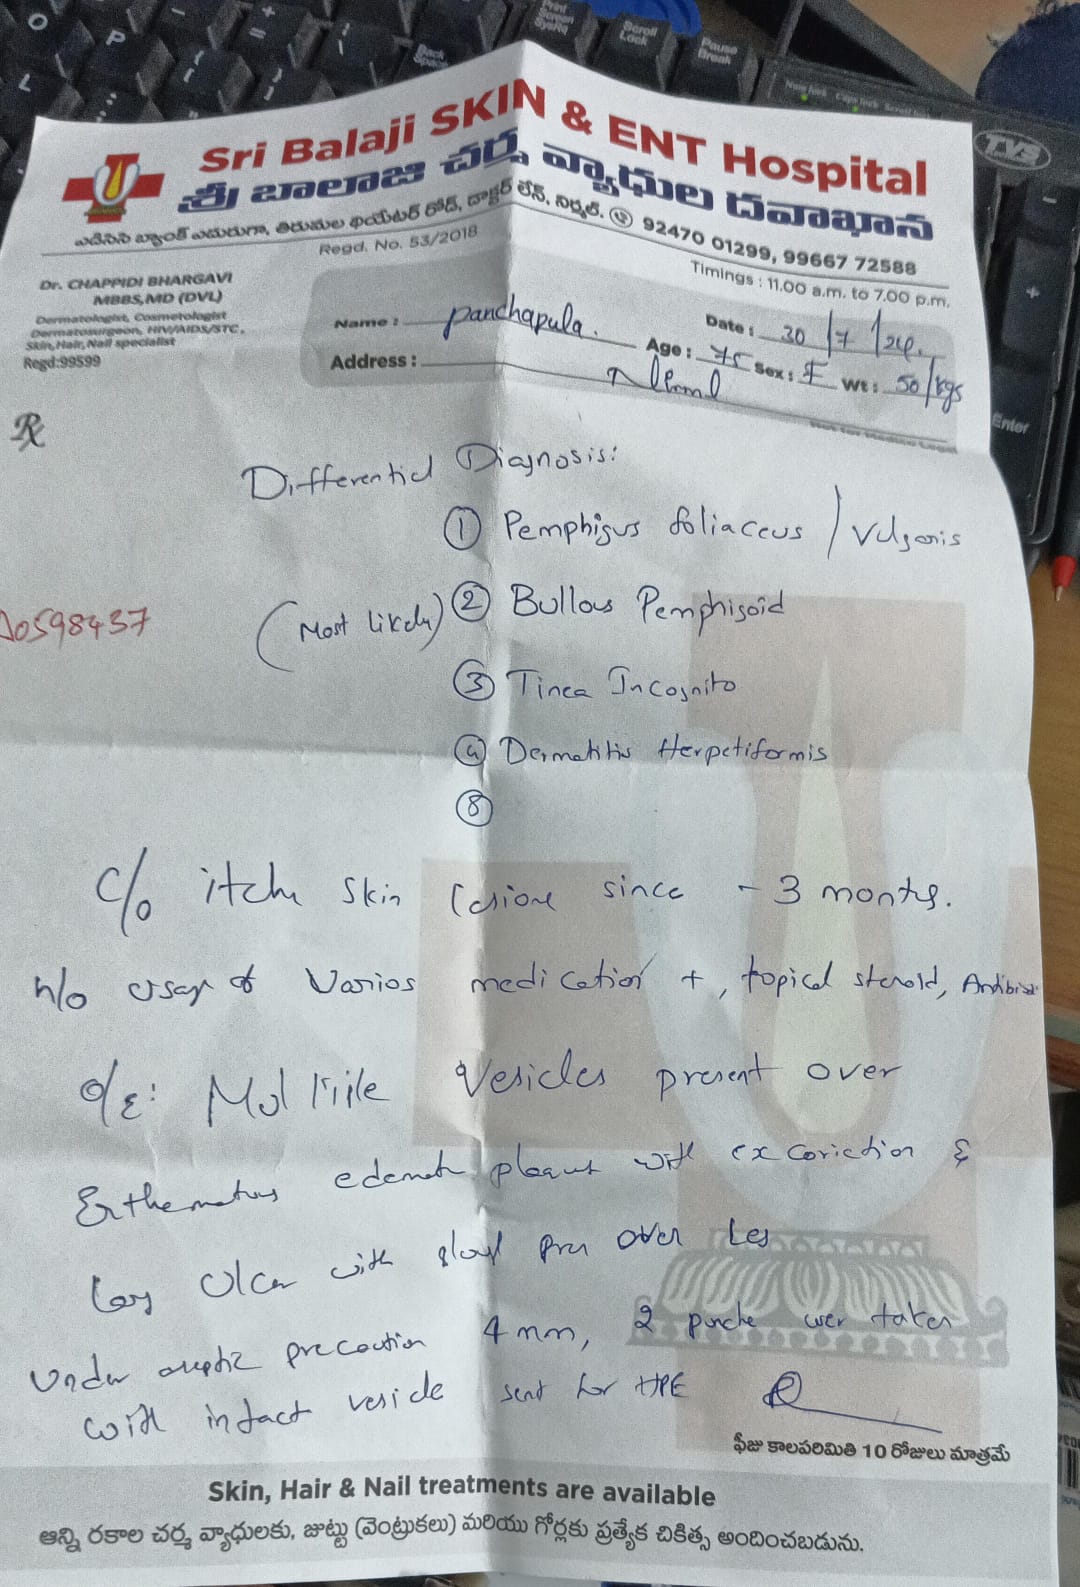 Sri Balaji SKIN & ENT Hospital
శ్రీ బాలాజి చర్మ వ్యాధుల దవాఖాన
ఎదురుగా, తిరుమల థియేటర్ రోడ్, డాక్టర్ లేన్, నిర్మల్. 92470 01299, 99667 72588
Regd. No. 53/2018
Timings : 11.00 a.m. to 7.00 p.m.
Dr. CHAPPIDI BHARGAVI
MBBS,MD (DVL)
Dermatologist, Cosmetologist
Dermatosurgeon, HIV/AIDS/STC,
Skin, Hair, Nail specialist
Regd:99599
Name : Panchapula. Date : 30/7/24.
Address : Age : 75 Sex : F Wt : 50/kgs
Rx
Differential Diagnosis:
① Pemphigus foliaceus / Vulgaris
(Most likely) ② Bullous Pemphigoid
A0598437
③ Tinea Incognito
④ Dermatitis Herpetiformis
⑧
c/o itchy skin lesions since - 3 months.
h/o usage of Varios medication +, topical steroid,
o/e: Multiple Vesicles present over
Erthematous edematous plaques with excoriation &
Ulcer with over Legs
Under aseptic precaution 4mm, 2 punche were taken
with intact vesicle sent for HPE
ఫీజు కాలపరిమితి 10 రోజులు మాత్రమే
Skin, Hair & Nail treatments are available
అన్ని రకాల చర్మ వ్యాధులకు, జుట్టు (వెంట్రుకలు) మరియు గోర్లకు ప్రత్యేక చికిత్స అందించబడును.
Print Screen SysRq
Scroll Lock
Pause Break
Back Space
O
P
L
TVS
Enter